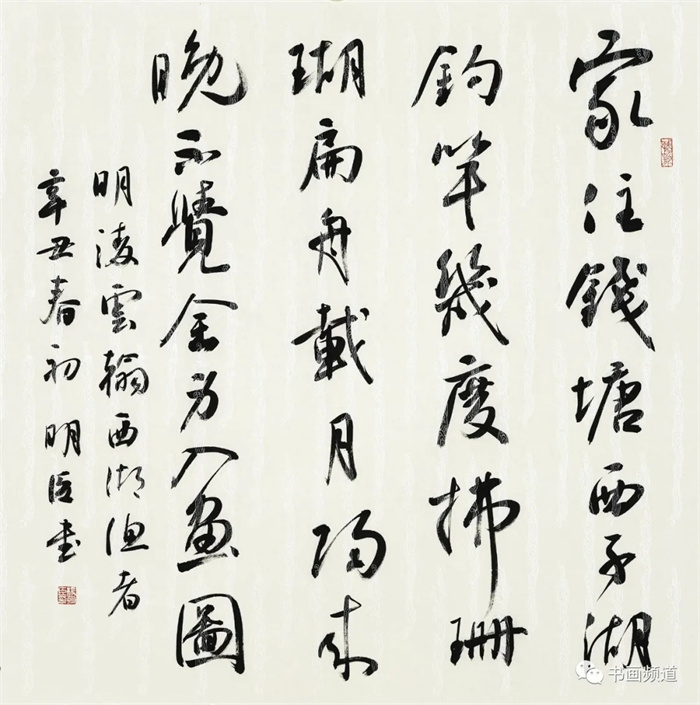 家住錢塘西子湖
釣竿幾度拂珊
瑚扁舟載月歸來
晚不覺全身入畫圖
明淩雲翰西湖漁者
辛丑春初明臣書
书画频道